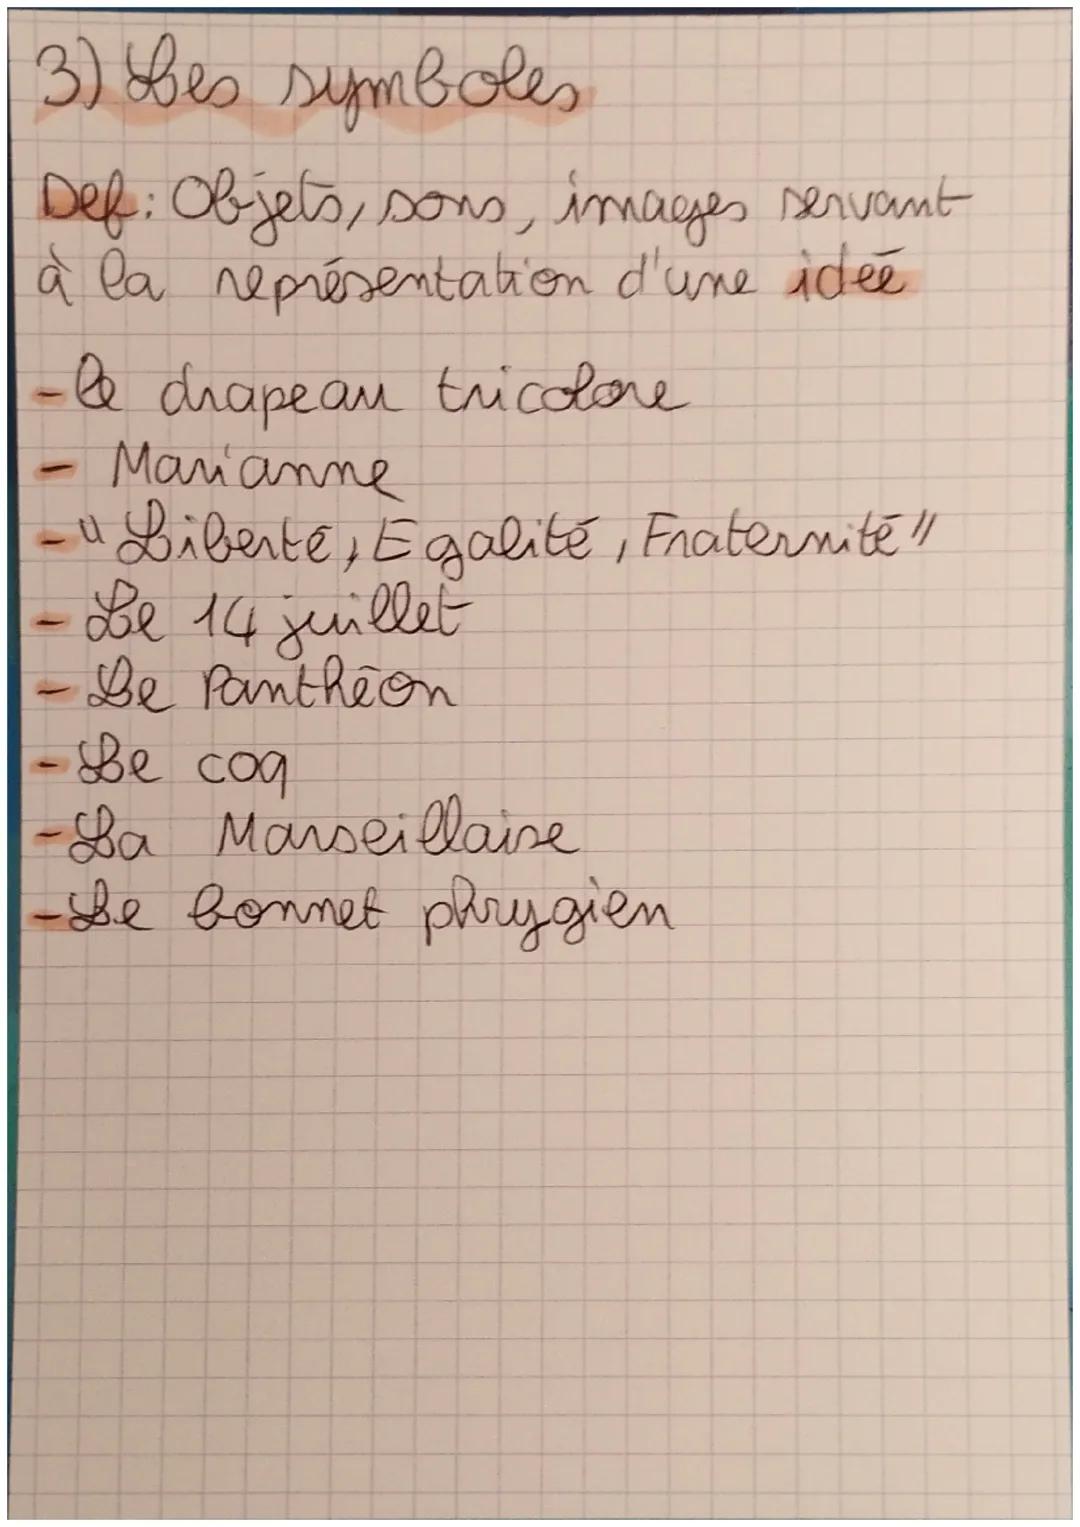 3) Les symboles
Def: Objets, sons, images servant
à la représentation d'une idée
- le drapeau tricolore
- Marianne
- "Liberté, Egalité, Fraternité"
- Le 14 juillet
- Le Panthéon
- Le coq
- La Marseillaise
- Le bonnet phrygien